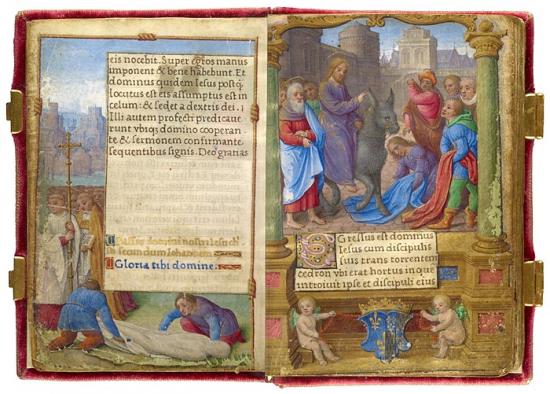 eis nocebit. Super egros manus
imponent & bene habebunt. Et
dominus quidem Iesus postq̃
locutus est eis assumptus est in
celum: & sedet a dextris dei. I
Illi autem profecti predicaue
runt vbiq; domino cooperan
te & sermonem confirmante.
sequentibus signis. Deo gratias
Passio domini nostri Iesu ch
secundum Iohannem
Gloria tibi domine.
EGressus est dominus
Iesus cum discipulis
suis trans torrentem
cedron vbi erat hortus in que
introiuit ipse et discipuli eius